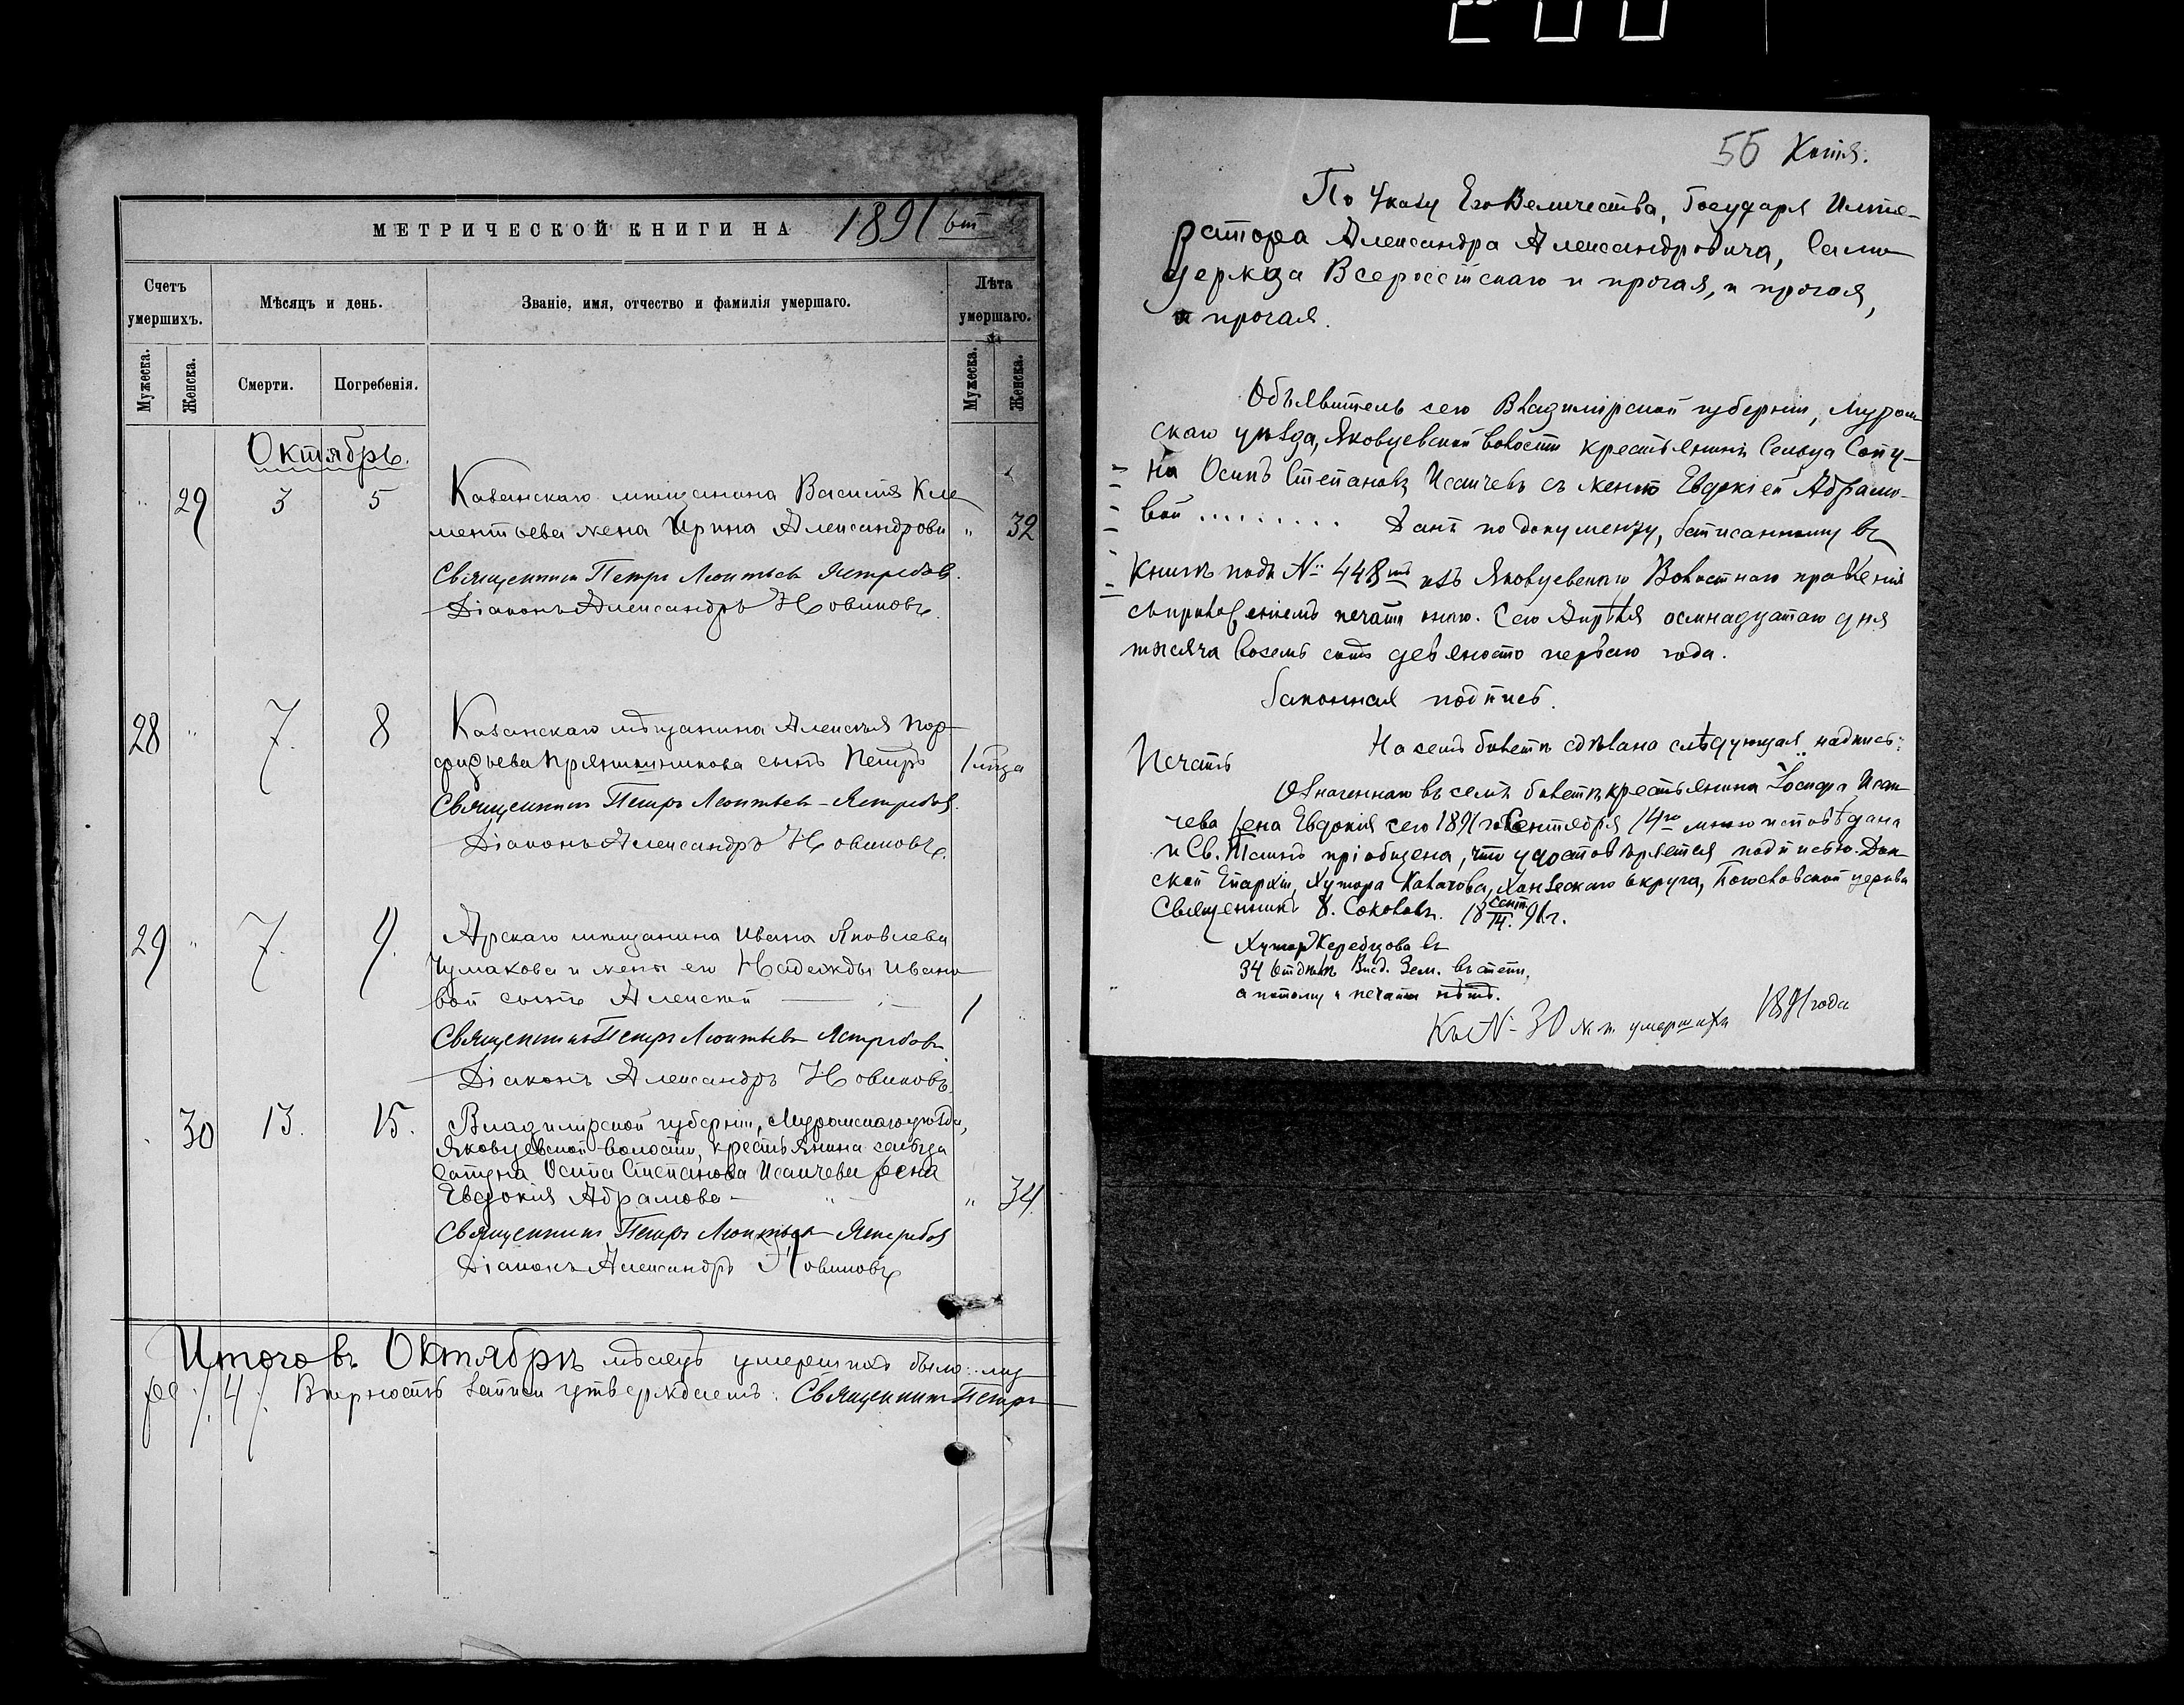 МЕТРИЧЕСКОЙ КНИГИ НА 1891
Счетъ умершихъ.
Мѣсяцъ и день.
Званіе, имя, отчество и фамилія умершаго.
Лѣта умершаго.
Мужеска.
Женска.
Смерти.
Погребенія.
Мужеска.
Женска.
Октябрь.
29 3 5 Казанскаго мѣщанина Василія Кле-
ментьева жена Ирина Александрова „ 32
Священникъ Петръ Леонтьевъ Ястребовъ.
Діаконъ Александръ Новиковъ.
28 „ 7. 8 Казанскаго мѣщанина Алексѣя Пор-
фирьева Прянишникова сынъ Петръ
Священникъ Петръ Леонтьевъ Ястребовъ.
Діаконъ Александръ Новиковъ.
29 „ 7. 9. Арскаго мѣщанина Ивана Яковлева
Чумакова и жены его Надежды Ивано-
вой сынъ Алексѣй 1
Священникъ Петръ Леонтьевъ Ястребовъ
Діаконъ Александръ Новиковъ.
30 13. 15. Владимірской губерніи, Муромскаго уѣзда,
Яковцевской волости, крестьянина сельца
Сапуна Осипа Степанова Исаичева жена
Евдокія Абрамова „ 34.
Священникъ Петръ Леонтьевъ Ястребовъ
Діаконъ Александръ Новиковъ
Итого въ Октябрѣ мѣсяцѣ умершихъ было: муж
4 Вѣрность записи утверждаемъ: Священникъ Петръ
56 Копія.
По Указу Его Величества, Государя Импе-
ратора Александра Александровича, Само-
держца Всероссійскаго и прочая, и прочая,
и прочая.
Объявитель сего Владимірской губерніи, Муром-
скаго уѣзда, Яковцевской волости крестьянинъ Сельца Сапу-
на Осипъ Степановъ Исаичевъ съ женою Евдокіей Абрамо-
вой ......... Данъ по документу, записанному въ
книгѣ подъ № 448 изъ Яковцевскаго Волостнаго правленія
съ приложеніемъ печати онаго. Сего Апрѣля осмнадцатаго дня
тысяча восемь сотъ девяносто перваго года.
Законная подпись.
Печать
На семъ билетѣ сдѣлана слѣдующая надпись:
Означеннаго въ семъ билетѣ крестьянина Іосифа Исаи-
чева жена Евдокія сего 1891 года Сентября 14го мною исповѣдана
и Св. Таинъ пріобщена, что удостовѣряется подписью. Дон-
ской Епархіи, Хутора Калачова, округа, церкви
Священникъ Соколовъ. 18 сент. 91 г.
Хуторъ Жеребцова въ
34 Зем. въ степи,
а потому и печати нѣтъ.
Къ № 30 ж.п. умершихъ 1891 года